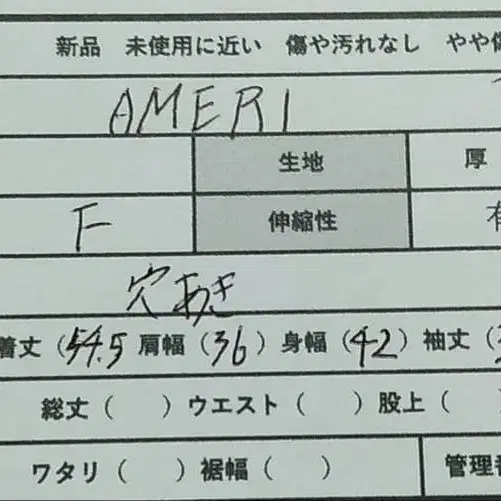 新品 未使用に近い 傷や汚れなし やや傷
AMERI
生地 厚
F 伸縮性 有
穴あき
着丈(54.5 肩幅(36) 身幅(42) 袖丈(
総丈( ) ウエスト( ) 股上(
ワタリ( ) 裾幅( ) 管理番